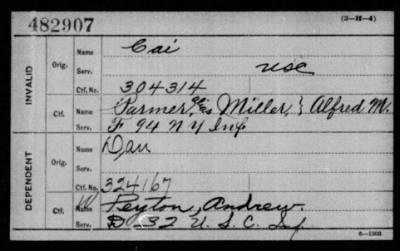 482907
(3-H-4)
INVALID
Orig.
Name Cai
Serv. use
Ctf. No. 304314
Ctf. Name Parmer, Miller, } Alfred M.
Serv. F 94 N Y Inf
DEPENDENT
Orig.
Name Dau
Serv.
Ctf. No. 324167
Ctf. W Name Peyton, Andrew
D 52 U.S.C. Inf
6-1303